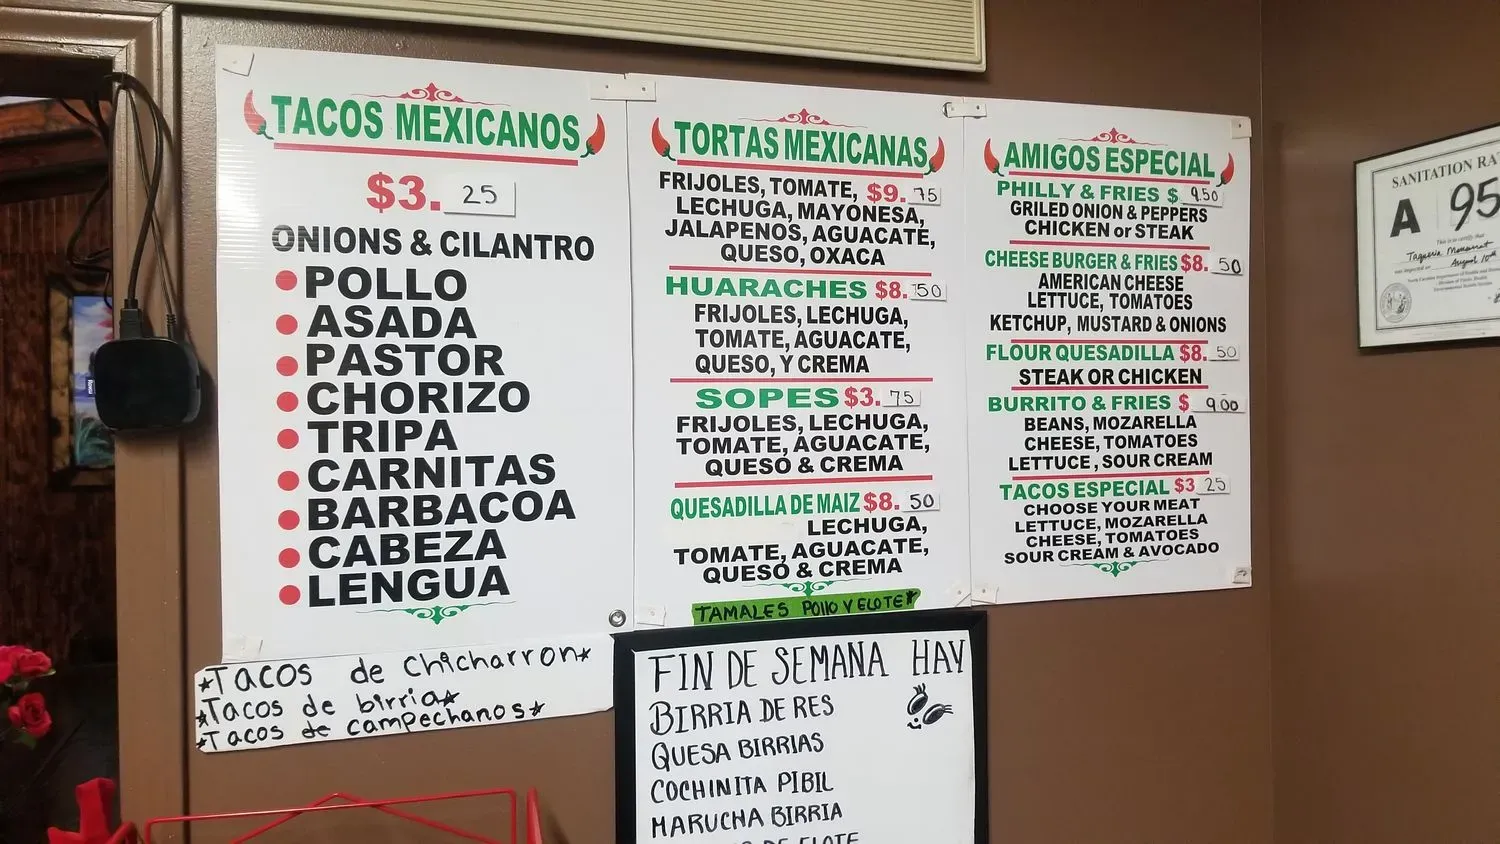 TACOS MEXICANOS
$3. 25
ONIONS & CILANTRO
POLLO
ASADA
PASTOR
CHORIZO
TRIPA
CARNITAS
BARBACOA
CABEZA
LENGUA
*Tacos de Chicharron*
*Tacos de birria*
*Tacos de campechanos*
TORTAS MEXICANAS
FRIJOLES, TOMATE, $9. 75
LECHUGA, MAYONESA,
JALAPENOS, AGUACATE,
QUESO, OXACA
HUARACHES $8. 50
FRIJOLES, LECHUGA,
TOMATE, AGUACATE,
QUESO, Y CREMA
SOPES $3. 75
FRIJOLES, LECHUGA,
TOMATE, AGUACATE,
QUESO & CREMA
QUESADILLA DE MAIZ $8. 50
LECHUGA,
TOMATE, AGUACATE,
QUESO & CREMA
TAMALES POllO Y ELOTE*
FIN DE SEMANA HAY
BIRRIA DE RES
QUESA BIRRIAS
COCHINITA PIBIL
MARUCHA BIRRIA
DE ELOTE
AMIGOS ESPECIAL
PHILLY & FRIES $ 9.50
GRILED ONION & PEPPERS
CHICKEN or STEAK
CHEESE BURGER & FRIES $8. 50
AMERICAN CHEESE
LETTUCE, TOMATOES
KETCHUP, MUSTARD & ONIONS
FLOUR QUESADILLA $8. 50
STEAK OR CHICKEN
BURRITO & FRIES $ 9.00
BEANS, MOZARELLA
CHEESE, TOMATOES
LETTUCE , SOUR CREAM
TACOS ESPECIAL $3 25
CHOOSE YOUR MEAT
LETTUCE, MOZARELLA
CHEESE, TOMATOES
SOUR CREAM & AVOCADO
SANITATION
A 95
This is to certify that
Taqueria
August 10th